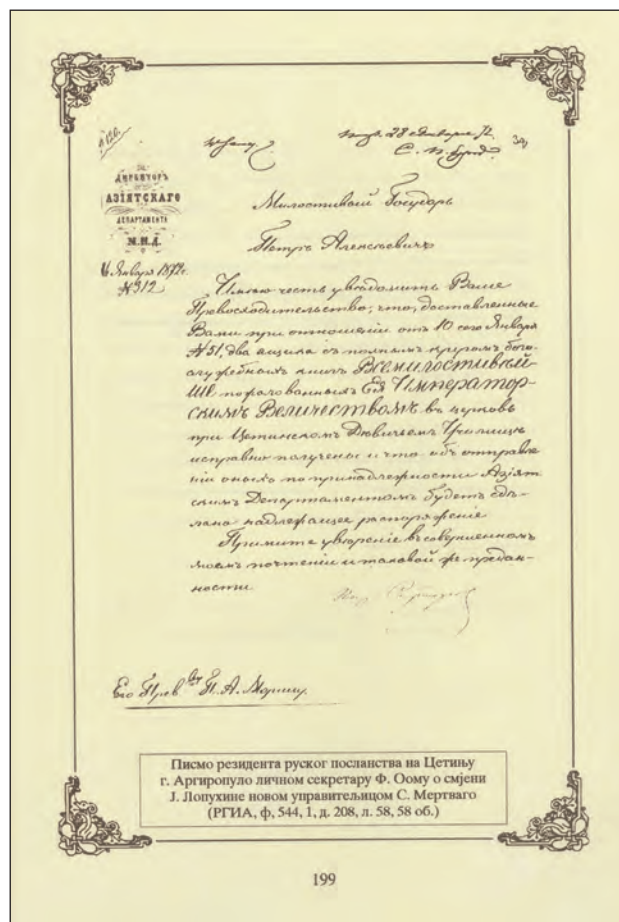 №120.
Изв. 28 Января 72
ДИРЕКТОРЪ
АЗIЯТСКАГО
ДЕПАРТАМЕНТА
М.И.Д.
Января 1872 г.
№ 312
Милостивый Государь
Петръ Алексѣевичъ
Имѣю честь увѣдомить Ваше
Превосходительство, что, доставленные
Вами при отношенiи отъ 10 сего Января
№ 51, два ящика съ полнымъ кругомъ бого-
служебныхъ книгъ Всемилостивѣй-
ше пожалованныхъ Ея Император-
скимъ Величествомъ въ церковь
при Цетинскомъ Дѣвичьемъ Училищѣ
исправно получены и что объ отправле-
нiи оныхъ по принадлежности Азiят-
скимъ Департаментомъ будетъ сдѣ-
лано надлежащее распоряженiе
Примите увѣренiе въ совершенномъ
моемъ почтенiи и таковой же предан-
ности
Его Прев ву П. А. Морицу.
Писмо резидента руског посланства на Цетињу
г. Аргиропуло личном секретару Ф. Оому о смјени
Ј. Лопухине новом управитељицом С. Мертваго
(РГИА, ф, 544, 1, д. 208, л. 58, 58 об.)
199